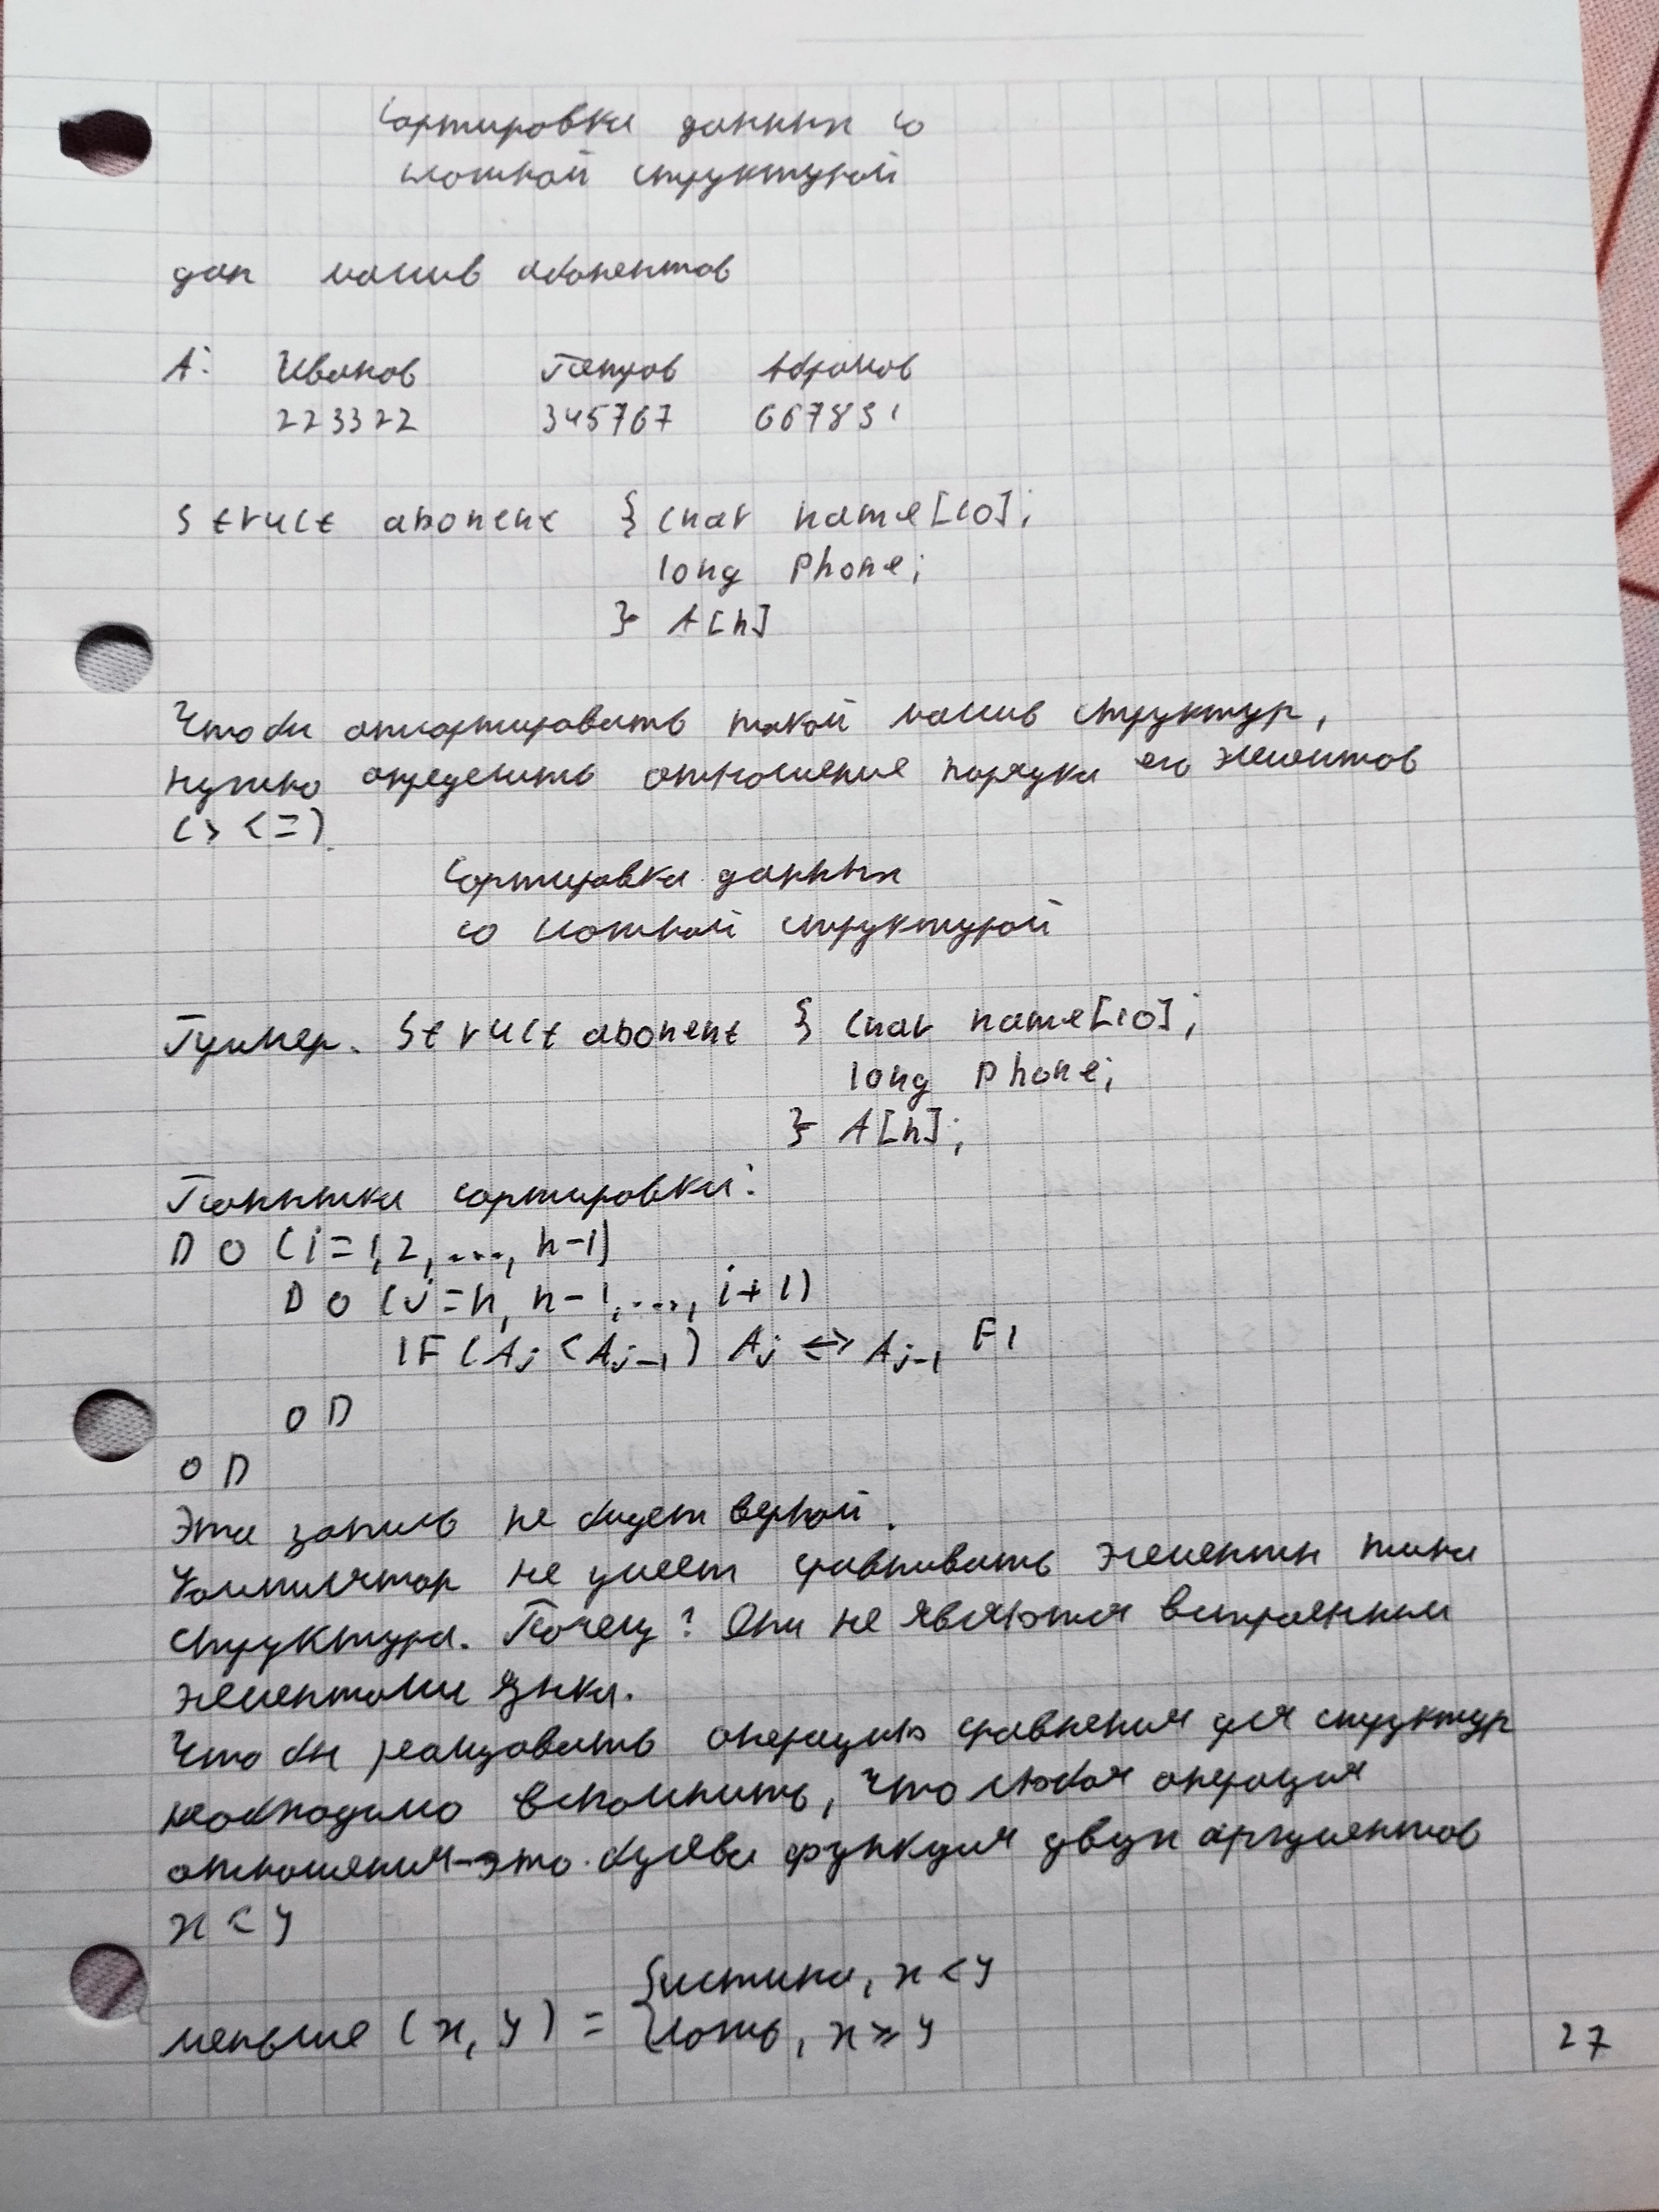 Сортировка данных со
сложной структурой
дан массив абонентов
A: Иванов Петров Абрамов
223322 345767 667891
Struct abonent { char name[10];
long Phone;
} A[n]
Чтобы отсортировать такой массив структур,
нужно определить отношение порядка его элементов
(> < =).
Сортировка данных
со сложной структурой
Пример. Struct abonent { char name[10];
long Phone;
} A[n];
Попытка сортировки:
DO (i=1,2,...,n-1)
DO (j=n,n-1,...,i+1)
IF (Aj < Aj-1) Aj <=> Aj-1 FI
OD
OD
Эта запись не будет верной.
Компилятор не умеет сравнивать элементы типа
структура. Почему? Они не являются встроенными
элементами языка.
Чтобы реализовать операцию сравнения для структур
необходимо вспомнить, что любая операция
отношения-это булева функция двух аргументов
x < y
меньше (x, y) = { истина, x < y
ложь, x ≥ y
27